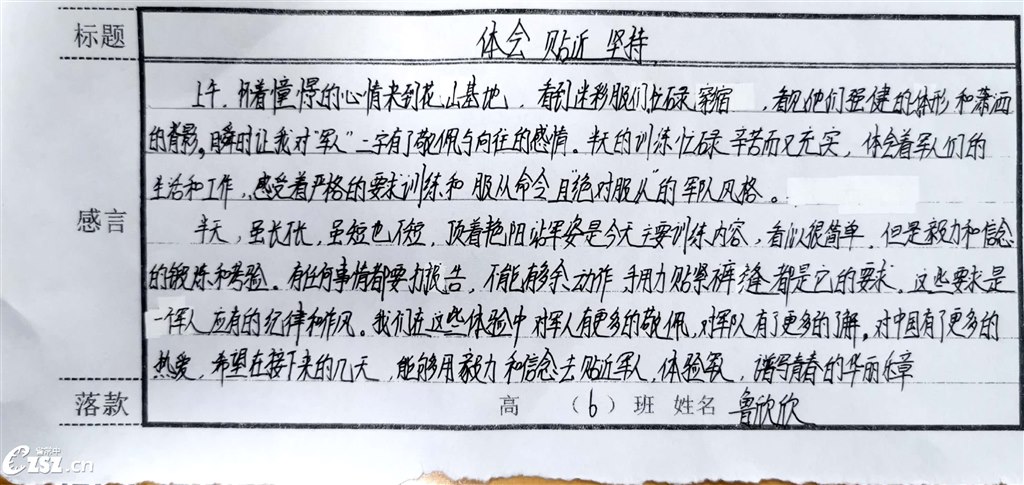 标题 体会 贴近 坚持
上午,怀着憧憬的心情来到花山基地,看到迷彩服们忙碌 宿 ,看见他们强健的体形和潇洒
的背影。瞬时让我对"军人"二字有了敬佩与向往的感情。半天的训练忙碌辛苦而又充实,体会着军人们的
生活和工作,感受着严格的要求训练和服从命令且"绝对服从"的军队风格。
感言
半天,虽长不长,虽短也不短,顶着艳阳站军姿是今天主要训练内容,看似很简单,但是毅力和信念
的锻炼和考验。有任何事情都要打报告,不能有多余动作,手用力贴紧裤缝都是它的要求。这些要求是
一军人应有的纪律和作风。我们在这些体验中对军人有更多的敬佩,对军队有了更多的了解,对中国有了更多的
热爱,希望在接下来的几天,能够用毅力和信念去贴近军人,体验军人,谱写青春的华丽乐章
落款 高 (6)班 姓名 鲁欣欣
省常中
CZSZ.cn